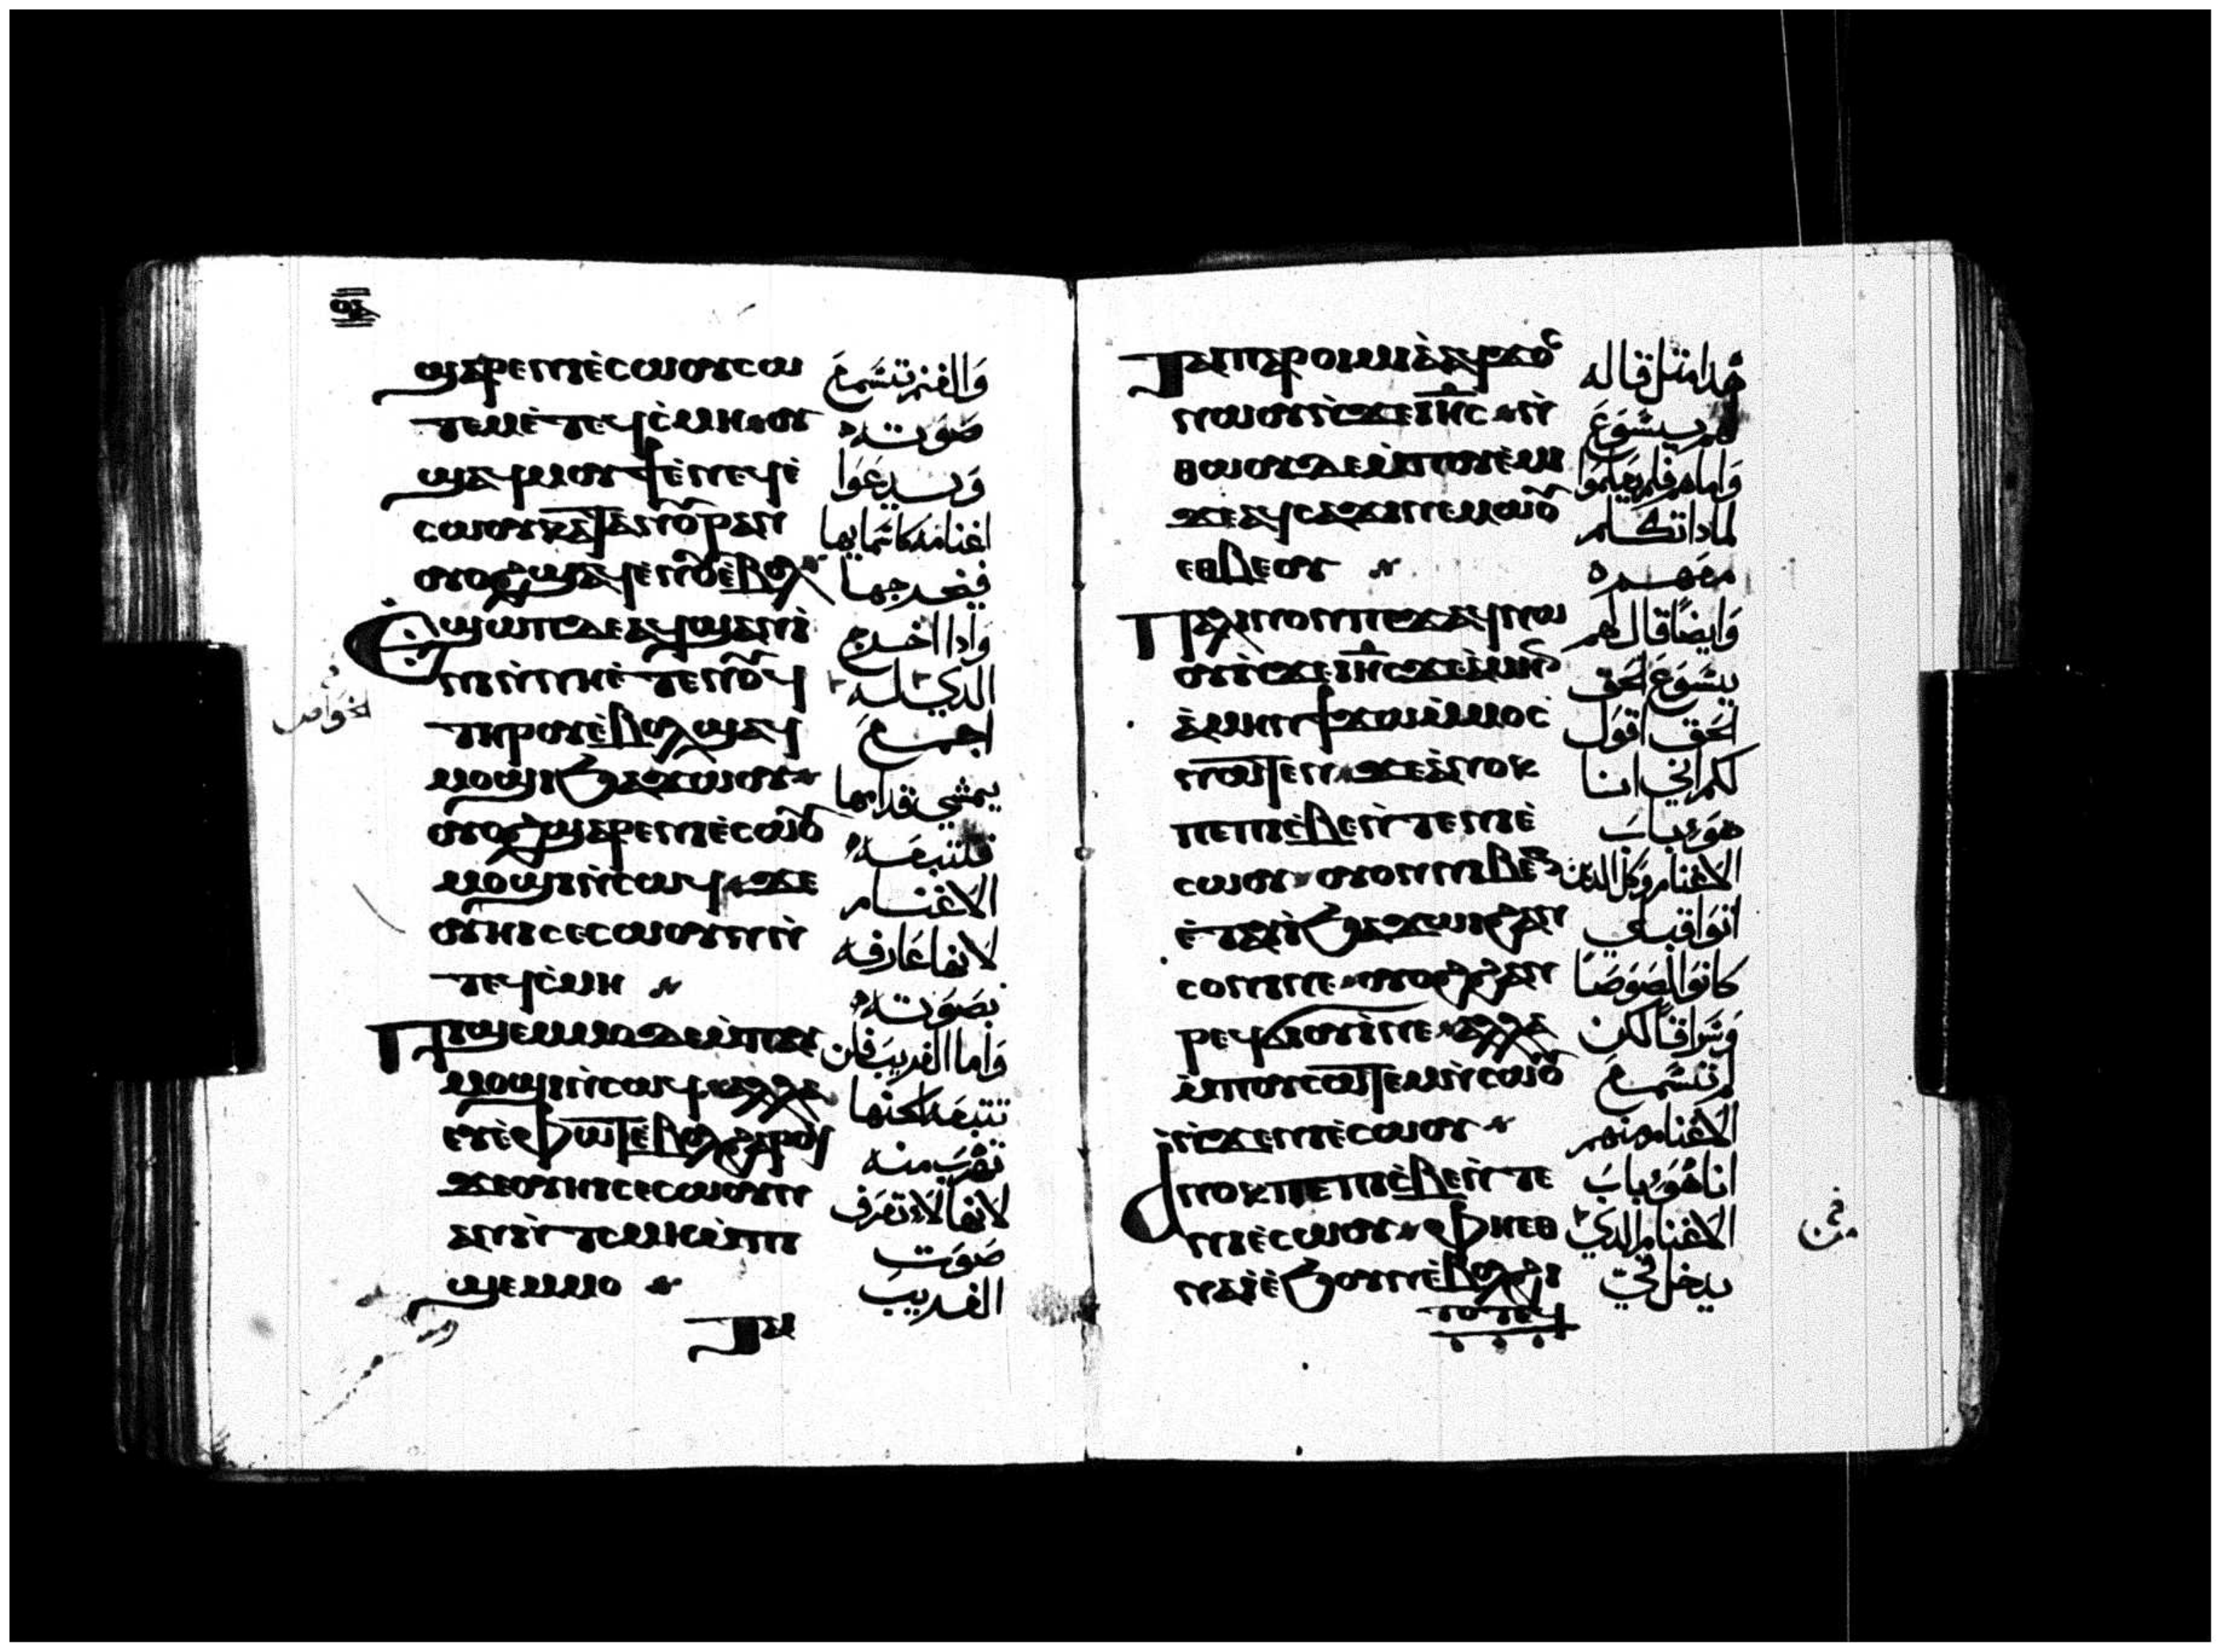 ϣⲁⲣⲉⲛⲓⲉ̀ⲥⲱⲟⲩⲥⲱ وَالغنم تتسَمعَ
ⲧⲉⲙⲉ̀ⲧⲉϥⲥ̀ⲙⲏ ⲟⲩ صَوَته
ϣⲁϥⲙⲟⲩϯⲉ̀ⲛⲉϥⲉ̀ وَيدعَوا
ⲥⲱⲟⲩⲕⲁⲧⲁⲛⲟⲩⲣⲁⲛ اغنامه كاسمايها
ⲟⲩⲟϩϣⲁϥⲉⲛⲟⲩⲉ̀ⲃⲟⲗ فيخرجها
Ⲉϣⲱⲡⲇⲉⲁϥϣⲁⲛⲓ̀ وَادا اخرج
ⲛⲓⲛ̀ⲛⲏⲉ̀ⲧⲉⲛⲟⲩϥ الدي له
ⲧⲏⲣⲟⲩⲉ̀ⲃⲟⲗϣⲁϥ اجمعَ
ⲙⲟϣⲓϧⲁϫⲱⲟⲩ يمشي قدامها
ⲟⲩⲟϩϣⲁⲣⲉⲛⲓⲉ̀ⲥⲱⲟⲩ فتتبعَه
ⲙⲟϣⲓⲛ̀ⲥⲱϥ ϫⲉ الاغنام
ⲟⲩⲏⲓⲥⲉⲥⲱⲟⲩⲛⲛ̀ لانها عَارفه
ⲧⲉϥⲥ̀ⲙⲏ بصَوَته
Ⲡⲓϣⲉⲙⲙⲟⲇⲉⲙ̀ⲡⲁⲩ وَاما الغريبَ فلن
ⲙⲟϣⲓⲛ̀ⲥⲱϥ ⲁⲗⲗⲁ تتبعَه لكنها
ⲉⲩⲉ̀ⲫⲱⲧⲉ̀ⲃⲟⲗϩⲁⲣⲟϥ تهربَ منه
ϫⲉⲟⲩⲏⲓⲥⲉⲥⲱⲟⲩⲛ لانها لاتعرَف
ⲁⲛⲛ̀ⲧⲥⲙⲏⲙ̀ⲡⲓ صَوَت
ϣⲉⲙⲙⲟ الغريبَ
ⲧⲁⲓ
Ⲧⲁⲓⲡⲁⲣⲟⲓⲙⲓⲁ̀ⲁϥϫⲟⲥ هدا متل قاله
ⲛⲱⲟⲩⲛ̀ϫⲉⲓⲏⲥ ⲛ̀ لهم يسَوَعَ
ⲑⲱⲟⲩⲇⲉⲙ̀ⲡⲟⲩⲉ̀ⲙⲓ وَاما هم فلم يعَلموا
ϫⲉⲁϥⲥⲁϫⲓⲛⲉⲙⲱⲟⲩ لمادا تكلم
ⲉⲑⲃⲉⲟⲩ معَهم
Ⲡⲁⲗⲓⲛⲟⲛⲡⲉϫⲁϥⲛⲱ وَايضًا قال لهم
ⲟⲩⲛ̀ϫⲉⲓⲏⲥϫⲉⲁ̀ⲙⲏⲛ يسَوَعَ الحق
ⲁ̀ⲙⲏⲛϯϫⲱⲙ̀ⲙⲟⲥ الحق اقوَل
ⲛⲱⲧⲉⲛ ϫⲉⲁ̀ⲛⲟⲕ لكم اني انا
ⲡⲉⲡⲓⲥ̀ⲃⲉⲛ̀ⲧⲉⲛⲓⲉ̀ هوَ بابَ
ⲥⲱⲟⲩ ⲟⲩⲟⲛⲛⲓⲃⲉⲛ الاغنام وكل الدين
ⲉ̀ⲧⲁⲩⲓ̀ϧⲁϫⲱⲓϩⲁⲛ اتوَا قبلي
ⲥⲟⲛⲓⲛⲉ ⲟⲩⲟϩϩⲁⲛ كانوَا لصَوَصًا
ⲣⲉϥϭⲓⲟⲩⲓ̀ⲛⲉ ⲁⲗⲗⲁ وَسَراقًا لكن
ⲙ̀ⲡⲟⲩⲥⲱⲧⲉⲙⲛ̀ⲥⲱⲟⲩ لم تتسَمعَ
ⲛ̀ϫⲉⲛⲓⲉ̀ⲥⲱⲟⲩ الاغنام منهم
Ⲁⲛⲟⲕⲡⲉⲡⲓⲥ̀ⲃⲉⲛ̀ⲧⲉ انا هوَ بابَ
ⲛⲓⲉ̀ⲥⲱⲟⲩ ⲫⲏⲉⲑ الاغنام الدي
ⲛⲁⲓ̀ⲉ̀ϧⲟⲩⲛⲉ̀ⲃⲟⲗϩⲓ يدخل فيّ
ⲧⲟⲧⲉϥ